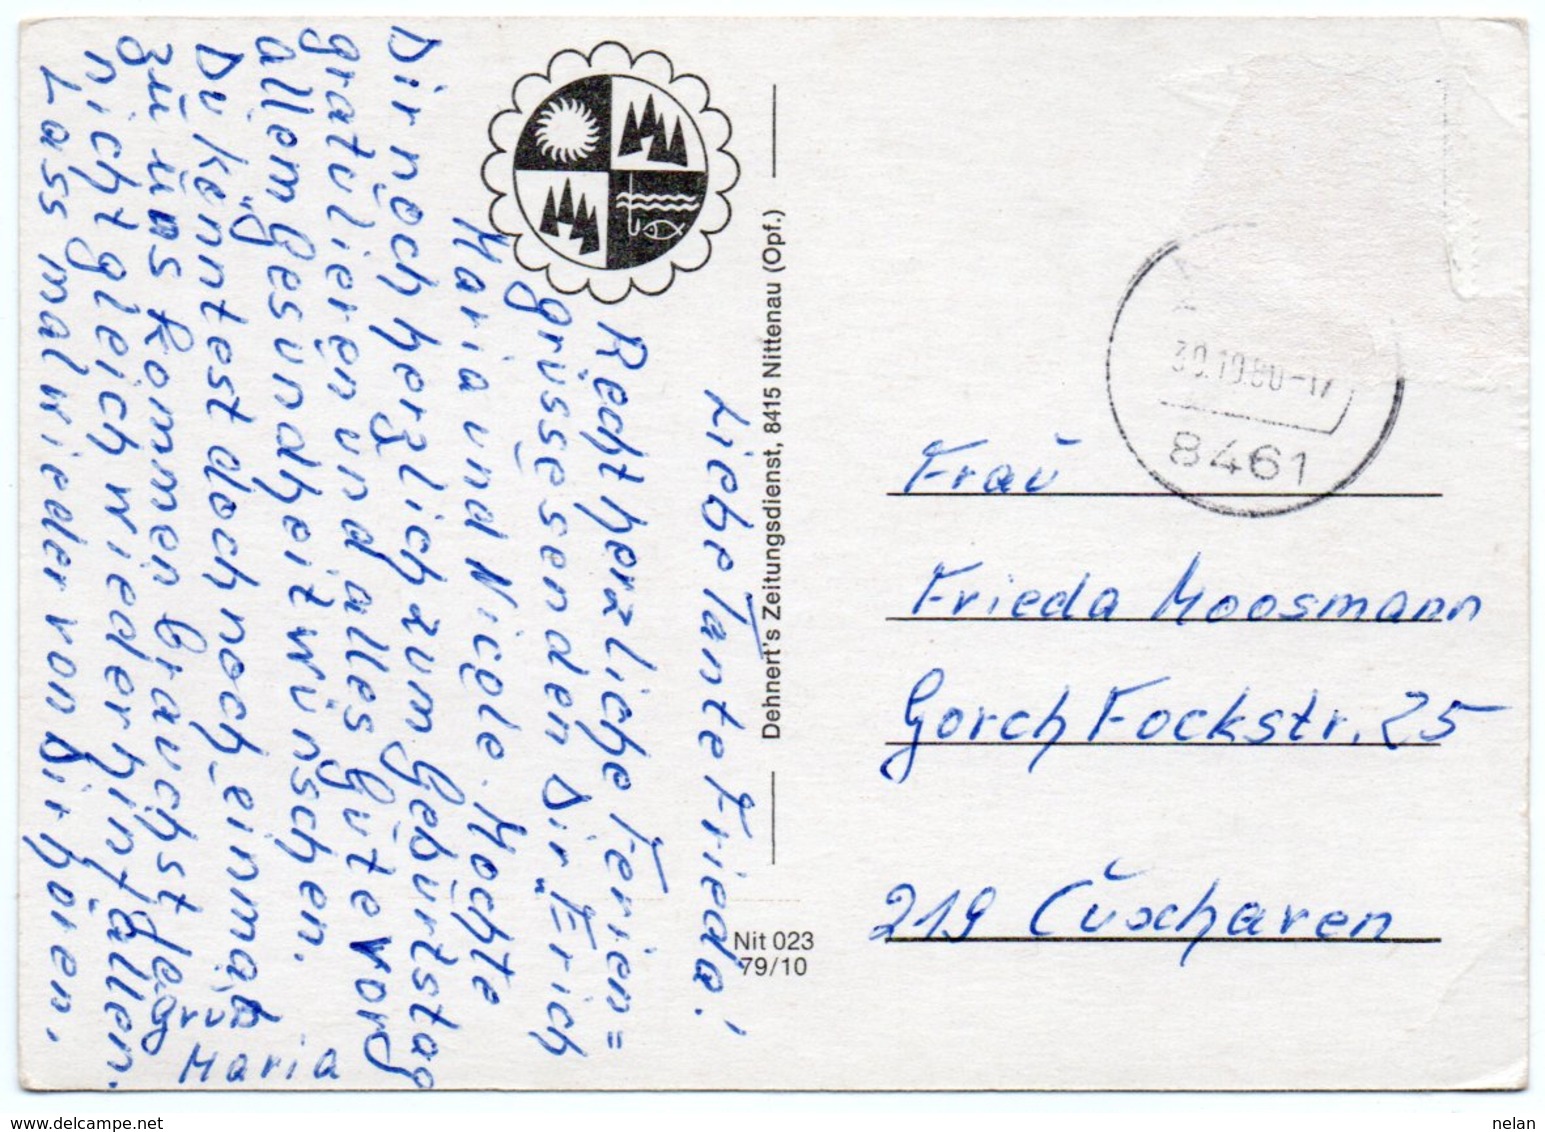 Liebe Tante Frieda!
Recht herzliche Ferien=
grüsse senden Dir "Erich
Maria und Nicole. Mochte
Dir noch herzlich zum Gebürtstag
gratulieren und alles Gute vorg
allem Gesundheit wünschen.
Du könntest doch noch einmal
zu uns kommen brauchst deg
nicht gleich wieder hinfallen.
Lass mal wieder von Dir hören.
Gruß
Maria
Dehnert's Zeitungsdienst, 8415 Nittenau (Opf.)
Nit 023
79/10
30.10.80-17
8461
Frau
Frieda Moosmann
Gorch Fockstr. 25
219 Cuxhaven
nelan